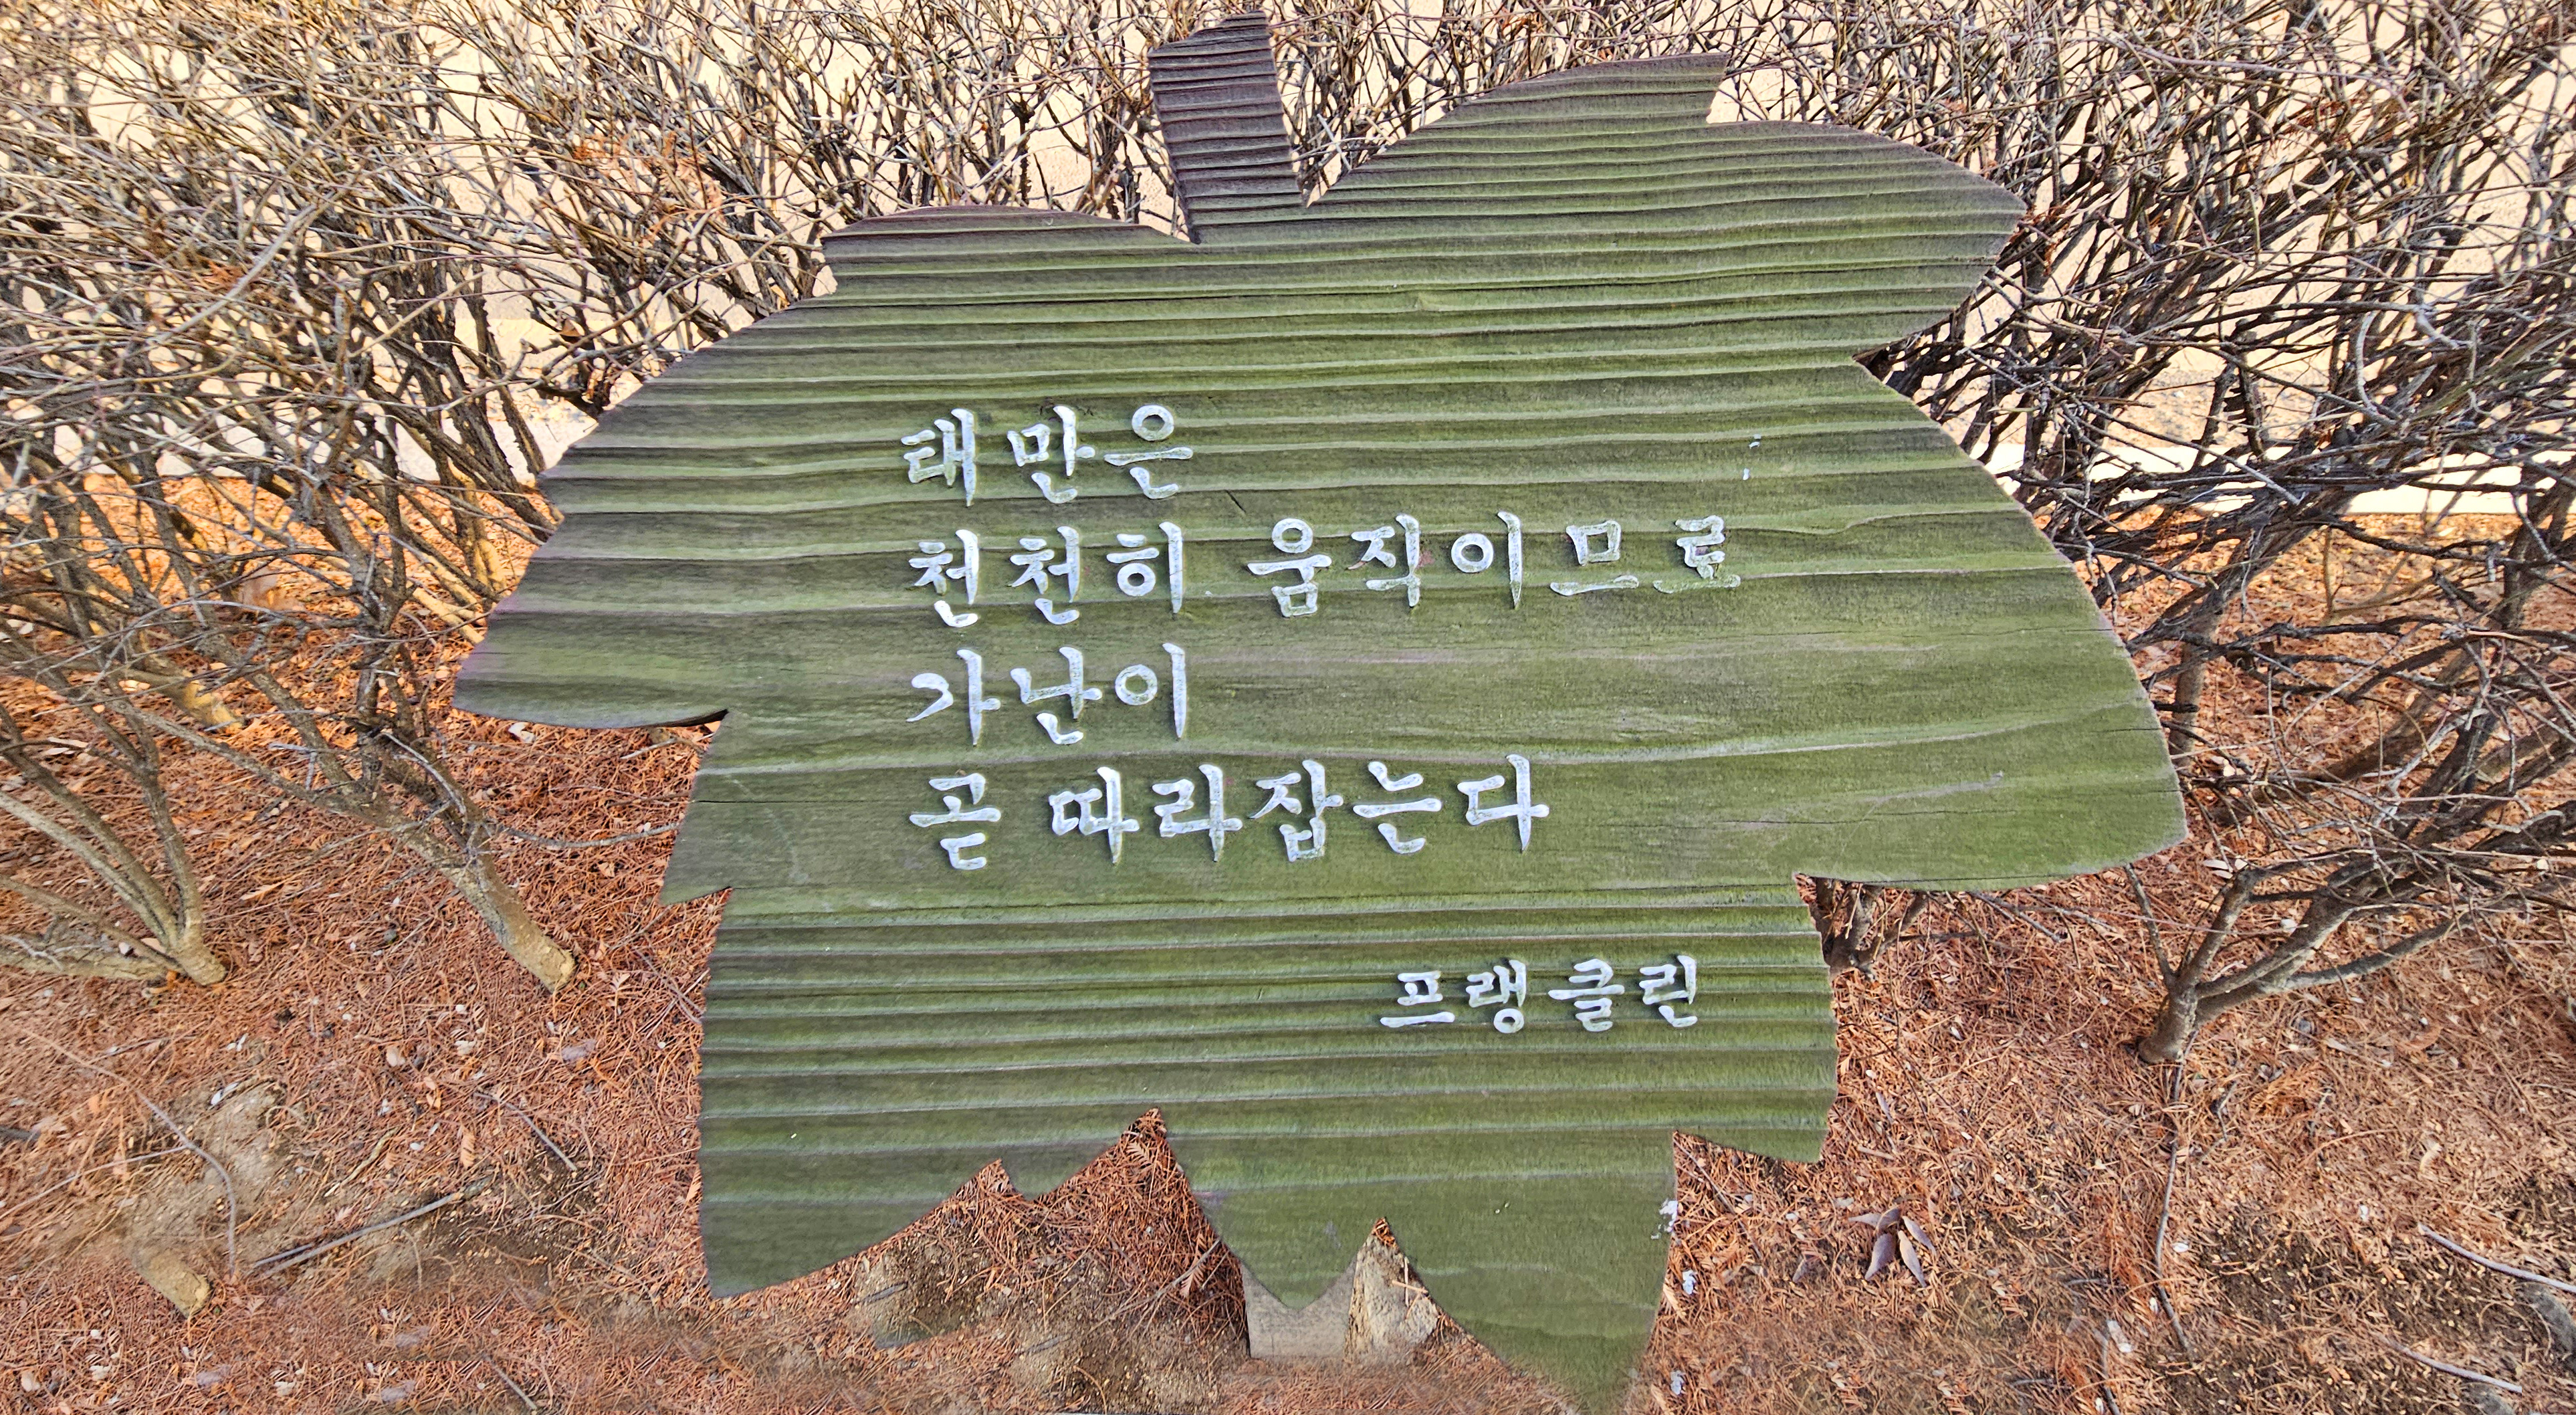 태만은
천천히 움직이므로
가난이
곧 따라잡는다
프랭클린